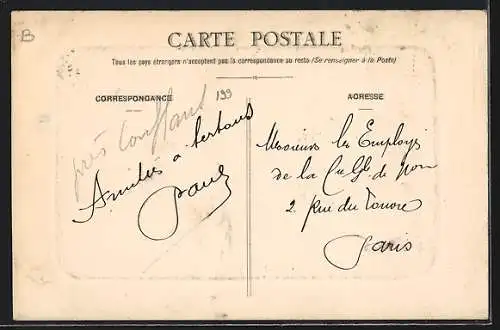 B
CARTE POSTALE
Tous les pays étrangers n'acceptent pas la correspondance au recto (Se renseigner à la Poste)
CORRESPONDANCE
près Conflans
199
Amitiés à
Paul
ADRESSE
Messieurs les Employés
de la Cie de
2 Rue du Louvre
Paris